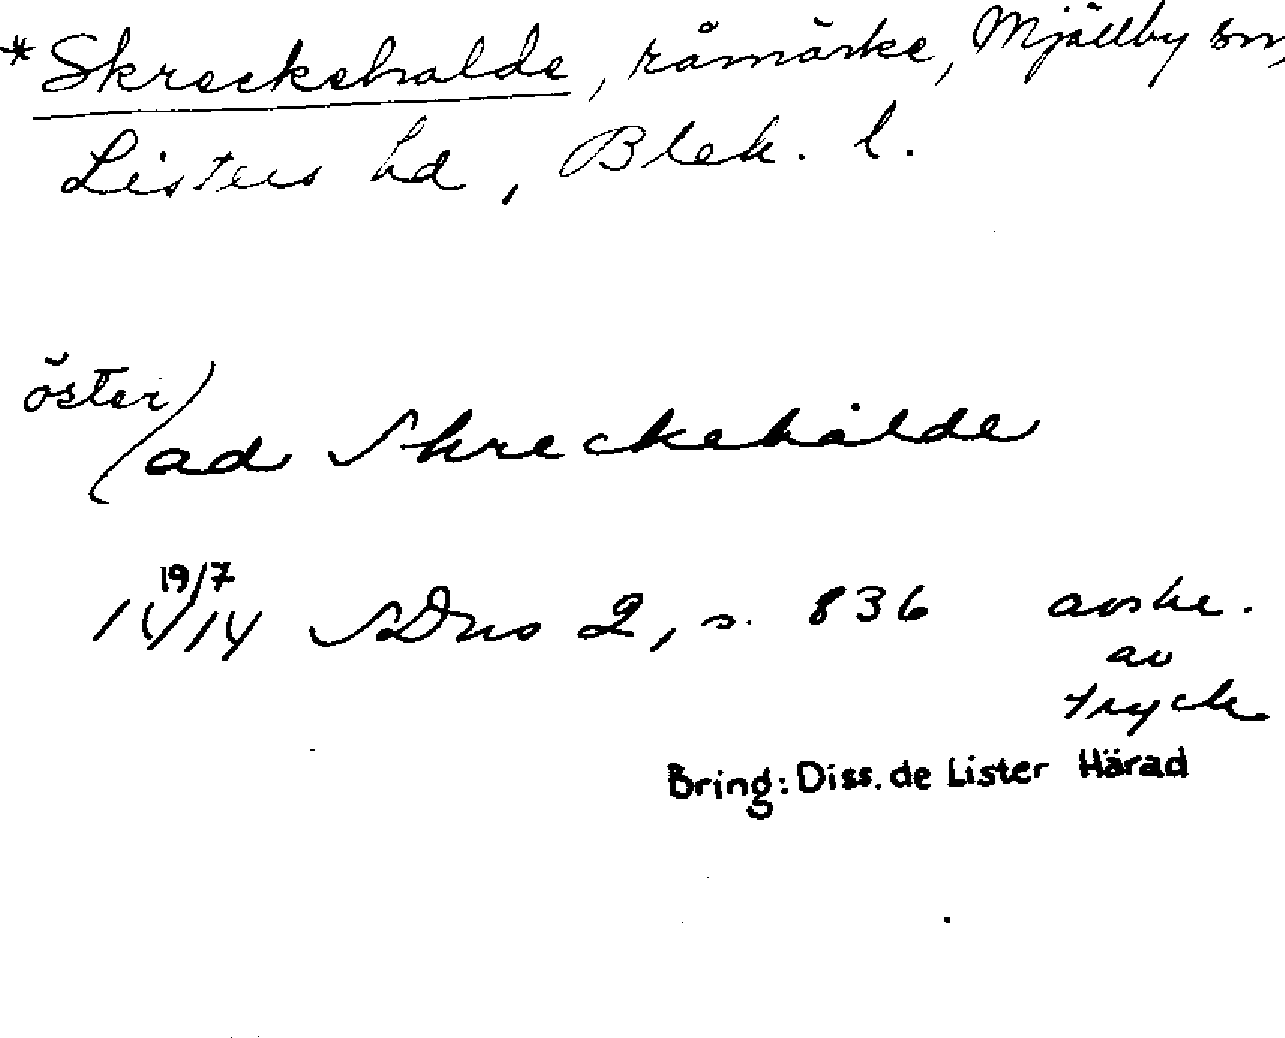 * Skreckehalde, råmärke, Mjällby sn,
Listers hd, Blek. l.
öster/
/ad Skreckehålde
19/7
1414 SDns 2, s. 836 avskr.
av
tryck
Bring: Diss. de Lister Härad